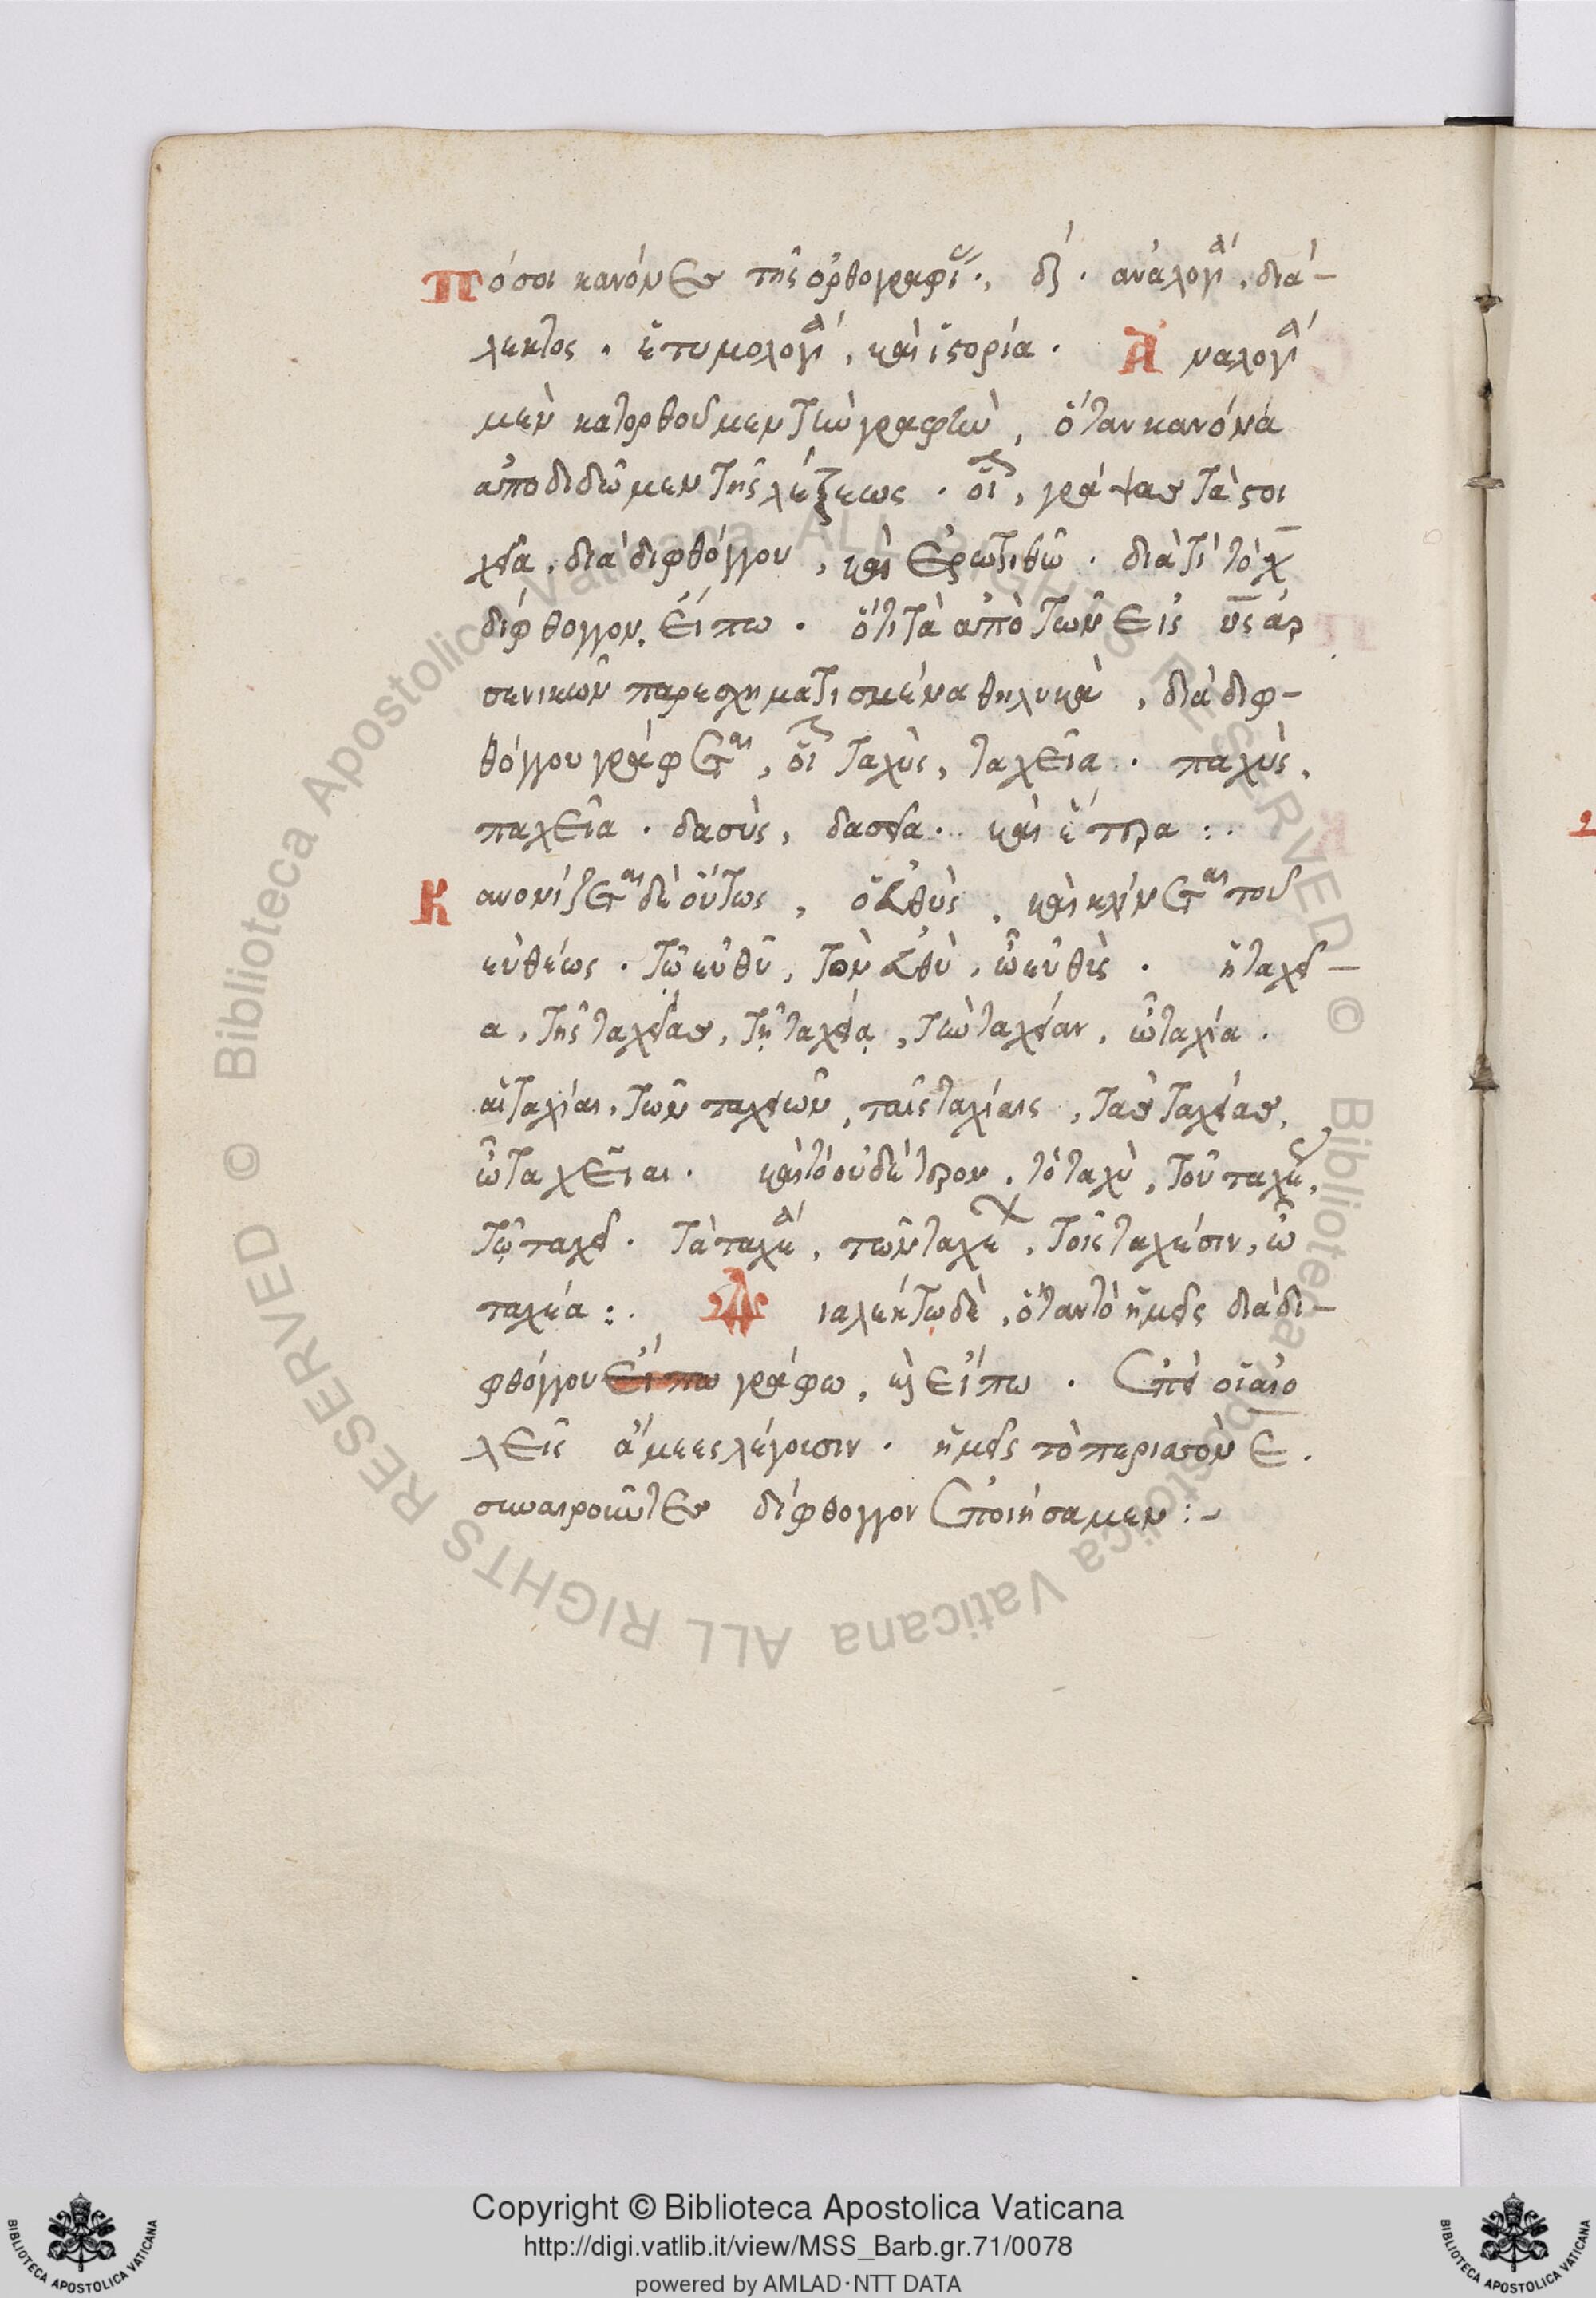 Πόσοι κανόνες τῆς ὀρθογραφί(ας)., δ΄. ἀναλογία, διά-
λεκτος. ἐτυμολογία, καὶ ἱστορία. Ἀναλογία
μὲν κατορθοῦμεν τὴν γραφὴν, ὅταν κανόνα
ἀποδιδῶμεν τῆς λέξεως. οἷον, γράψας τὰ στοι
χεῖα, διὰ διφθόγγου, καὶ ἐρωτιθῶ. διὰ τί τὸ χ
δίφθογγον, εἴπω. ὅτι τὰ ἀπὸ τῶν εἰς υς ἀρ
σενικῶν παρεσχηματισμένα θηλυκὰ, διὰ διφ-
θόγγου γράφεται, οἷον ταχὺς, ταχεῖα. παχὺς,
παχεῖα. δασὺς, δασεῖα. καὶ ἕτερα :.
Κανονίζεται δὲ οὕτως, ὁ εὐθὺς, καὶ κλίνεται τοῦ
εὐθέως. τῷ εὐθῦ, τὸν εὐθὺ, ὦ εὐθὶς. ἡ ταχεῖ-
α, τῆς ταχείας, τῇ ταχείᾳ, τὴν ταχείαν, ὦ ταχία.
αἱ ταχίαι, τῶν ταχειῶν, ταῖς ταχίαις, τὰς ταχείας,
ὦ ταχεῖαι. καὶ τὸ οὐδέτερον, τὸ ταχὺ, τοῦ ταχέος,
τῷ ταχεῖ. τὰ ταχέα, τῶν ταχέων, τοῖς ταχέσιν, ὦ
ταχέα :. Διαλέκτῳ δὲ, ὅταν τὸ ἡμεῖς διὰ δι-
φθόγγου εἴπω γράφω, καὶ εἴπω. ἐπεὶ οἱ αἰο
λεῖς ἄμεες λέγουσιν. ἡμεῖς τὸ περισσὸν ε.
συναιροῦντες δίφθογγον ἐποιήσαμεν :-
Copyright © Biblioteca Apostolica Vaticana
http://digi.vatlib.it/view/MSS_Barb.gr.71/0078
powered by AMLAD·NTT DATA
BIBLIOTECA APOSTOLICA VATICANA
BIBLIOTECA APOSTOLICA VATICANA
© Biblioteca Apostolica Vaticana ALL RIGHTS RESERVED © Biblioteca Apostolica Vaticana ALL RIGHTS RESERVED